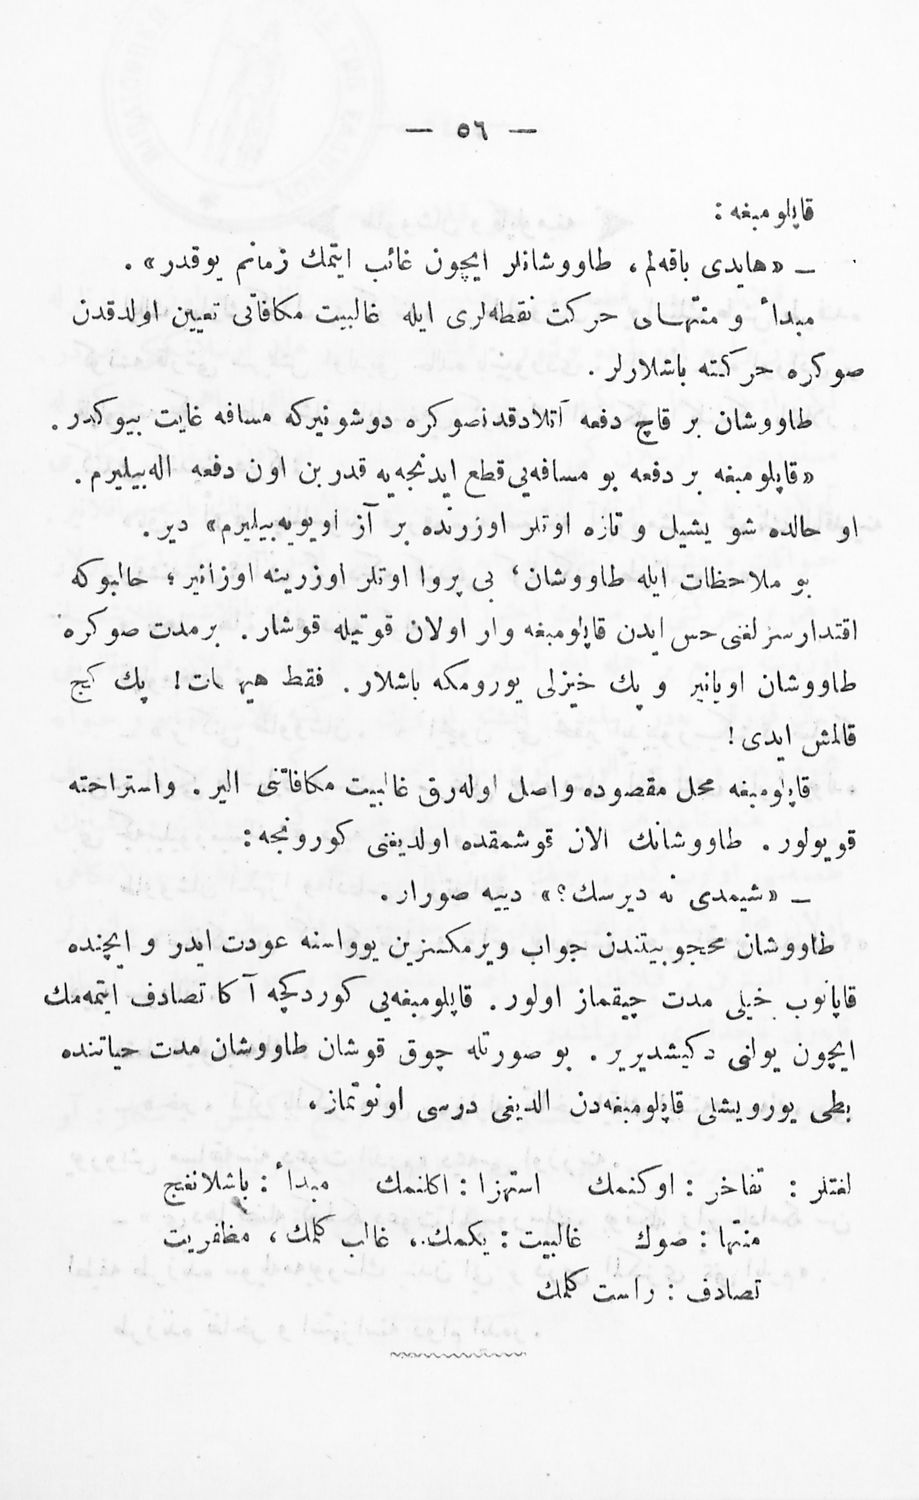 — ٥٦ —
قاپلومبغه :
— «هايدی باقه‌لم ، طاووشانلر ايچون غائب ايتمك زمانم يوقدر» .
مبدأ و منتهاى حركت نقطه‌لری ايله غالبيت مكافاتی تعيين اولدقدن
صوكره حركته باشلارلر .
طاووشان بر قاچ دفعه آتلادقدنصوكره دوشونيركه مسافه غايت بيوكدر .
«قاپلومبغه بر دفعه بو مسافه‌يی قطع ايدنجه‌يه قدر بن اون دفعه اله‌بيليرم .
او حالده شو يشيل و تازه اوتلر اوزرنده بر آز اويويه‌بيليرم» دير .
بو ملاحظات ايله طاووشان ، بی پروا اوتلر اوزرينه اوزانير ؛ حالبوكه
اقتدارسزلغنی حس ايدن قاپلومبغه وار اولان قوتيله قوشار . بر مدت صوكره
طاووشان اويانير و پك خيزلی يورومكه باشلار . فقط هيهات ! پك كيج
قالمش ايدی !
قاپلومبغه محل مقصوده واصل اوله‌رق غالبيت مكافاتنی الير . و استراحته
قويولور . طاووشانك الان قوشمقده اولديغنی كورونجه :
— «شيمدی نه ديرسك ؟» دييه صورار .
طاووشان محجوبيتندن جواب ويرمكسزين يوواسنه عودت ايدر و ايچنده
قاپانوب خيلی مدت چيقماز اولور . قاپلومبغه‌يی كوردكچه آكا تصادف ايتمه‌مك
ايچون يولنی دكيشديرير . بو صورتله چوق قوشان طاووشان مدت حياتنده
بطی يورويشلی قاپلومبغه‌دن الديغی درسی اونوتماز .
لغتلر : تفاخر : اوكنمك استهزا : اكلنمك مبدأ : باشلانغج
منتها : صوك غالبيت : يكمك ، غالب كلمك ، مظفريت
تصادف : راست كلمك